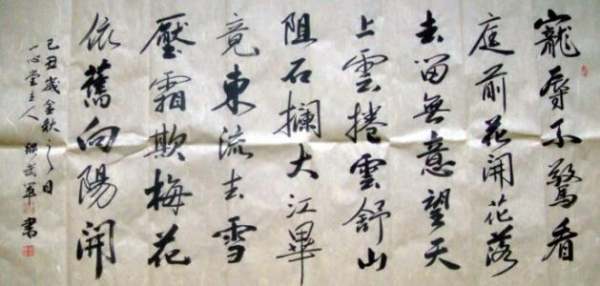 寵辱不驚看
庭前花開花落
去留無意望天
上雲捲雲舒山
阻石攔大江畢
竟東流去雪
壓霜欺梅花
依舊向陽開
己丑歲金秋之日
一心堂主人 軍書